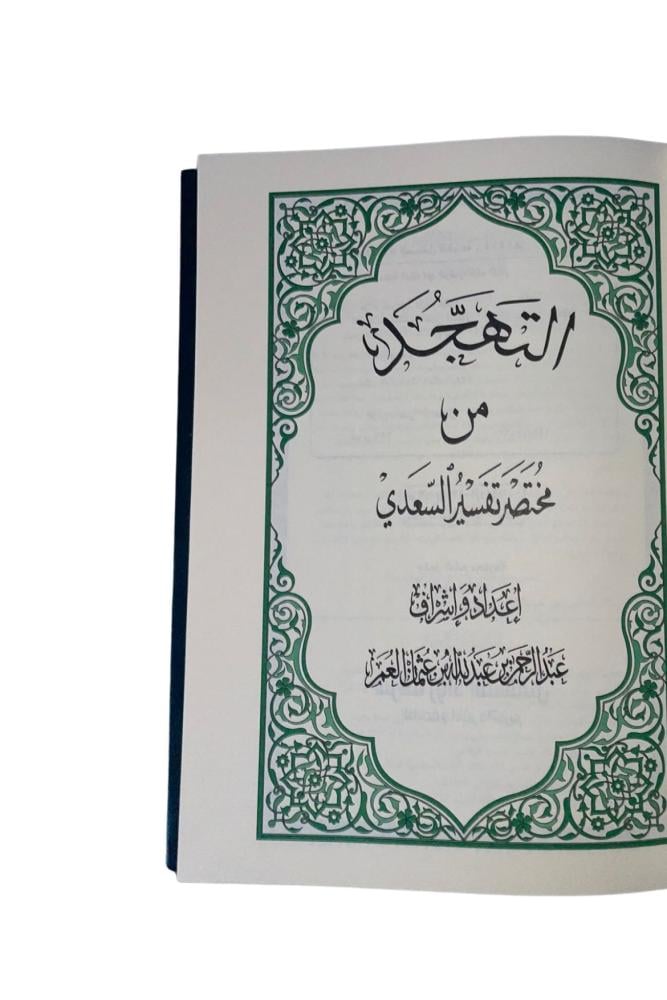 التَهَجُّد
من
مُختَصر تَفسيرُ السّعَدي
إعَدَاد وَإشرَاف
عَبدُ الرَّحمَن بن عَبدُ للهِ بُن عُثمَان العُمَر